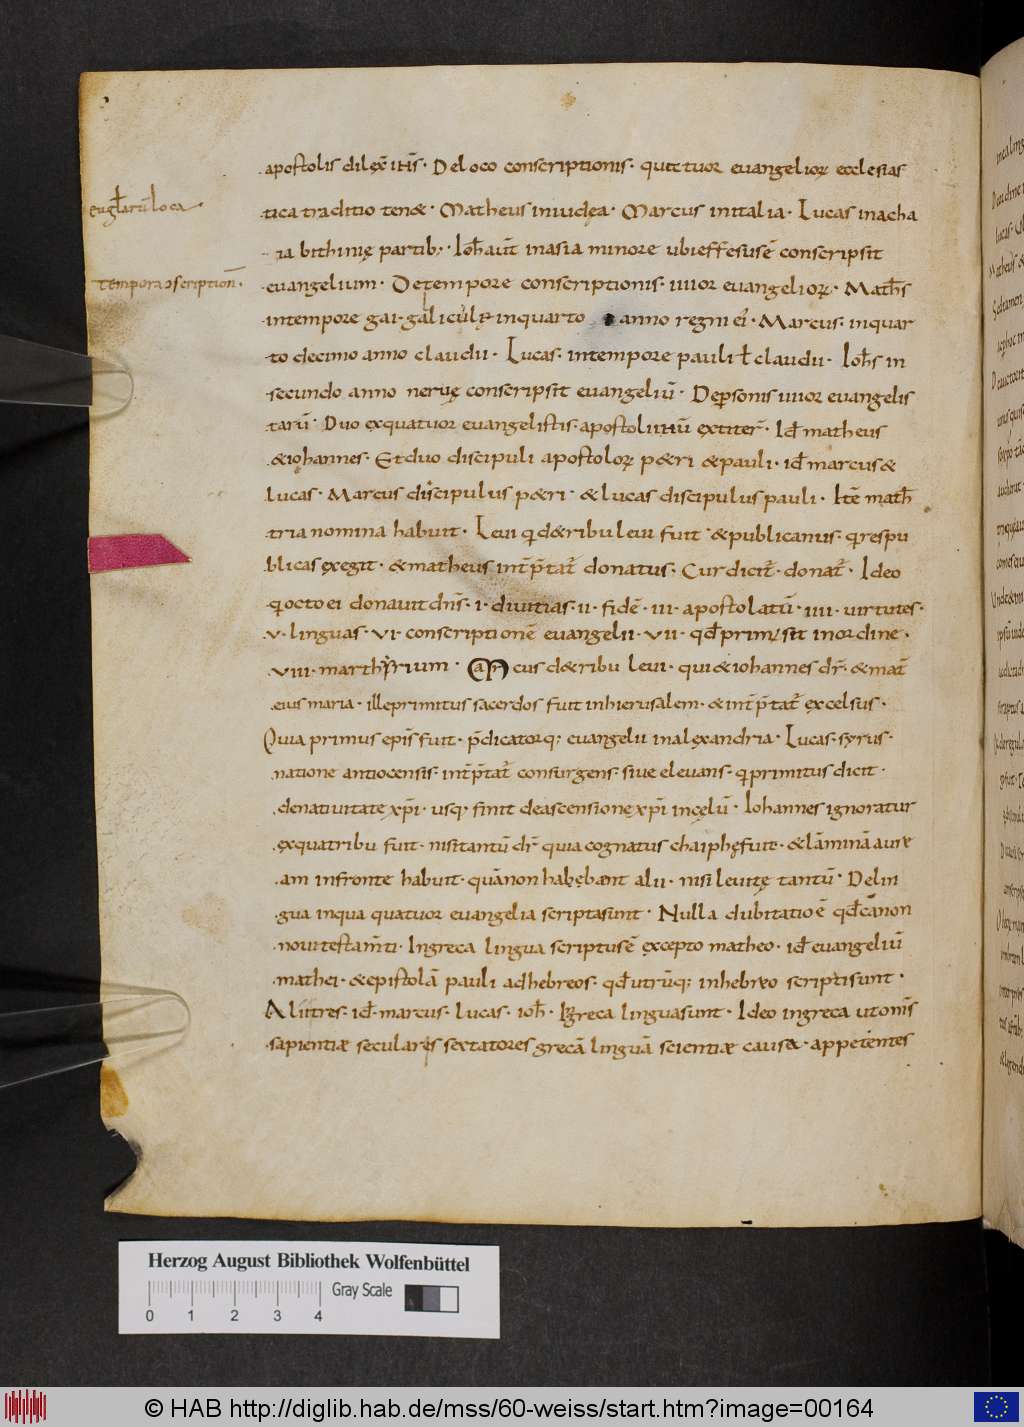 apostolis dilex̄ ih̄s · De loco conscriptionis · quattuor euangelior̨ ecclesias
euglarūloca
tica traditio ten& · Matheus iniudęa · Marcus initalia · Lucas inacha
ia bithinię partib; · Ioh̄ aut̄ inasia minore ubieffesusē conscripsit
tempora ɔscription̄ ·
euangelium · Detempore conscriptionis · iiiior euangelior̨ · Math̄s
intempore gai · galiculę inquarto anno regni ei · Marcus · inquar
to decimo anno claudii · Lucas · intempore pauli ł claudii · Ioh̄s in
secundo anno neruę conscripsit euangeliū · Depsonis iiiior euangelis
tarū · Duo exquatuor euangelistis · apostoli extiter̄ · Id̄ matheus
&iohannes · Et duo discipuli apostolor̨ p&ri &pauli · id̄ marcus&
lucas · Marcus discipulus p&ri · &lucas discipulus pauli · Itē math̄
tria nomina habuit · Leui qd&ribu leui fuit · &publicanus · qrespu
blicas exegit · &matheus int̄p̄tat̄ donatus · Cur dicit̄ · donat̄ · Ideo
qocto ei donauit dn̄s · i · diuitias · ii · fidē · iii · apostolatū · iiii · uirtutes ·
· v · linguas · vi · conscriptionē euangelii · vii · qd̄ primus sit inordine ·
viii · marthirium · Marcus d&ribu leui · qui&iohannes dr̄ · &mat̄
eius maria · ille primitus sacerdos fuit inhierusalem · &int̄p̄tat̄ excelsus ·
Quia primus epis̄ fuit · p̄dicatorq; euangelii inalexandria · Lucas · syrus ·
natione antiocensis · int̄p̄tat̄ consurgens · siue eleuans · qprimitus dicit ·
denatiuitate xp̄i · usq; finit deascensione xp̄i incęlū · Iohannes ignoratur
exquatribu fuit · nisitantū dr̄ quia cognatus chaiphę fuit · &lāminā aure
am infronte habuit · quā non habębant alii · nisi leuitę tantū · Delin
gua inqua quatuor euangelia scriptasunt · Nulla dubitatioē qd̄ canon
noui testam̄ti · Ingreca lingua scriptusē excepto matheo · id̄ euangeliū
mathei · &epistolā pauli adhebreos · qd̄ utrūq; inhebreo scriptisunt ·
Alii tres · id̄ · marcus · lucas · ioh̄ · Ingreca linguasunt · Ideo ingreca utomn̄s
sapientiæ seculares sectatores grecā linguā scientiæ causa · appetentes
Herzog August Bibliothek Wolfenbüttel
Gray Scale
0 1 2 3 4
© HAB http://diglib.hab.de/mss/60-weiss/start.htm?image=00164